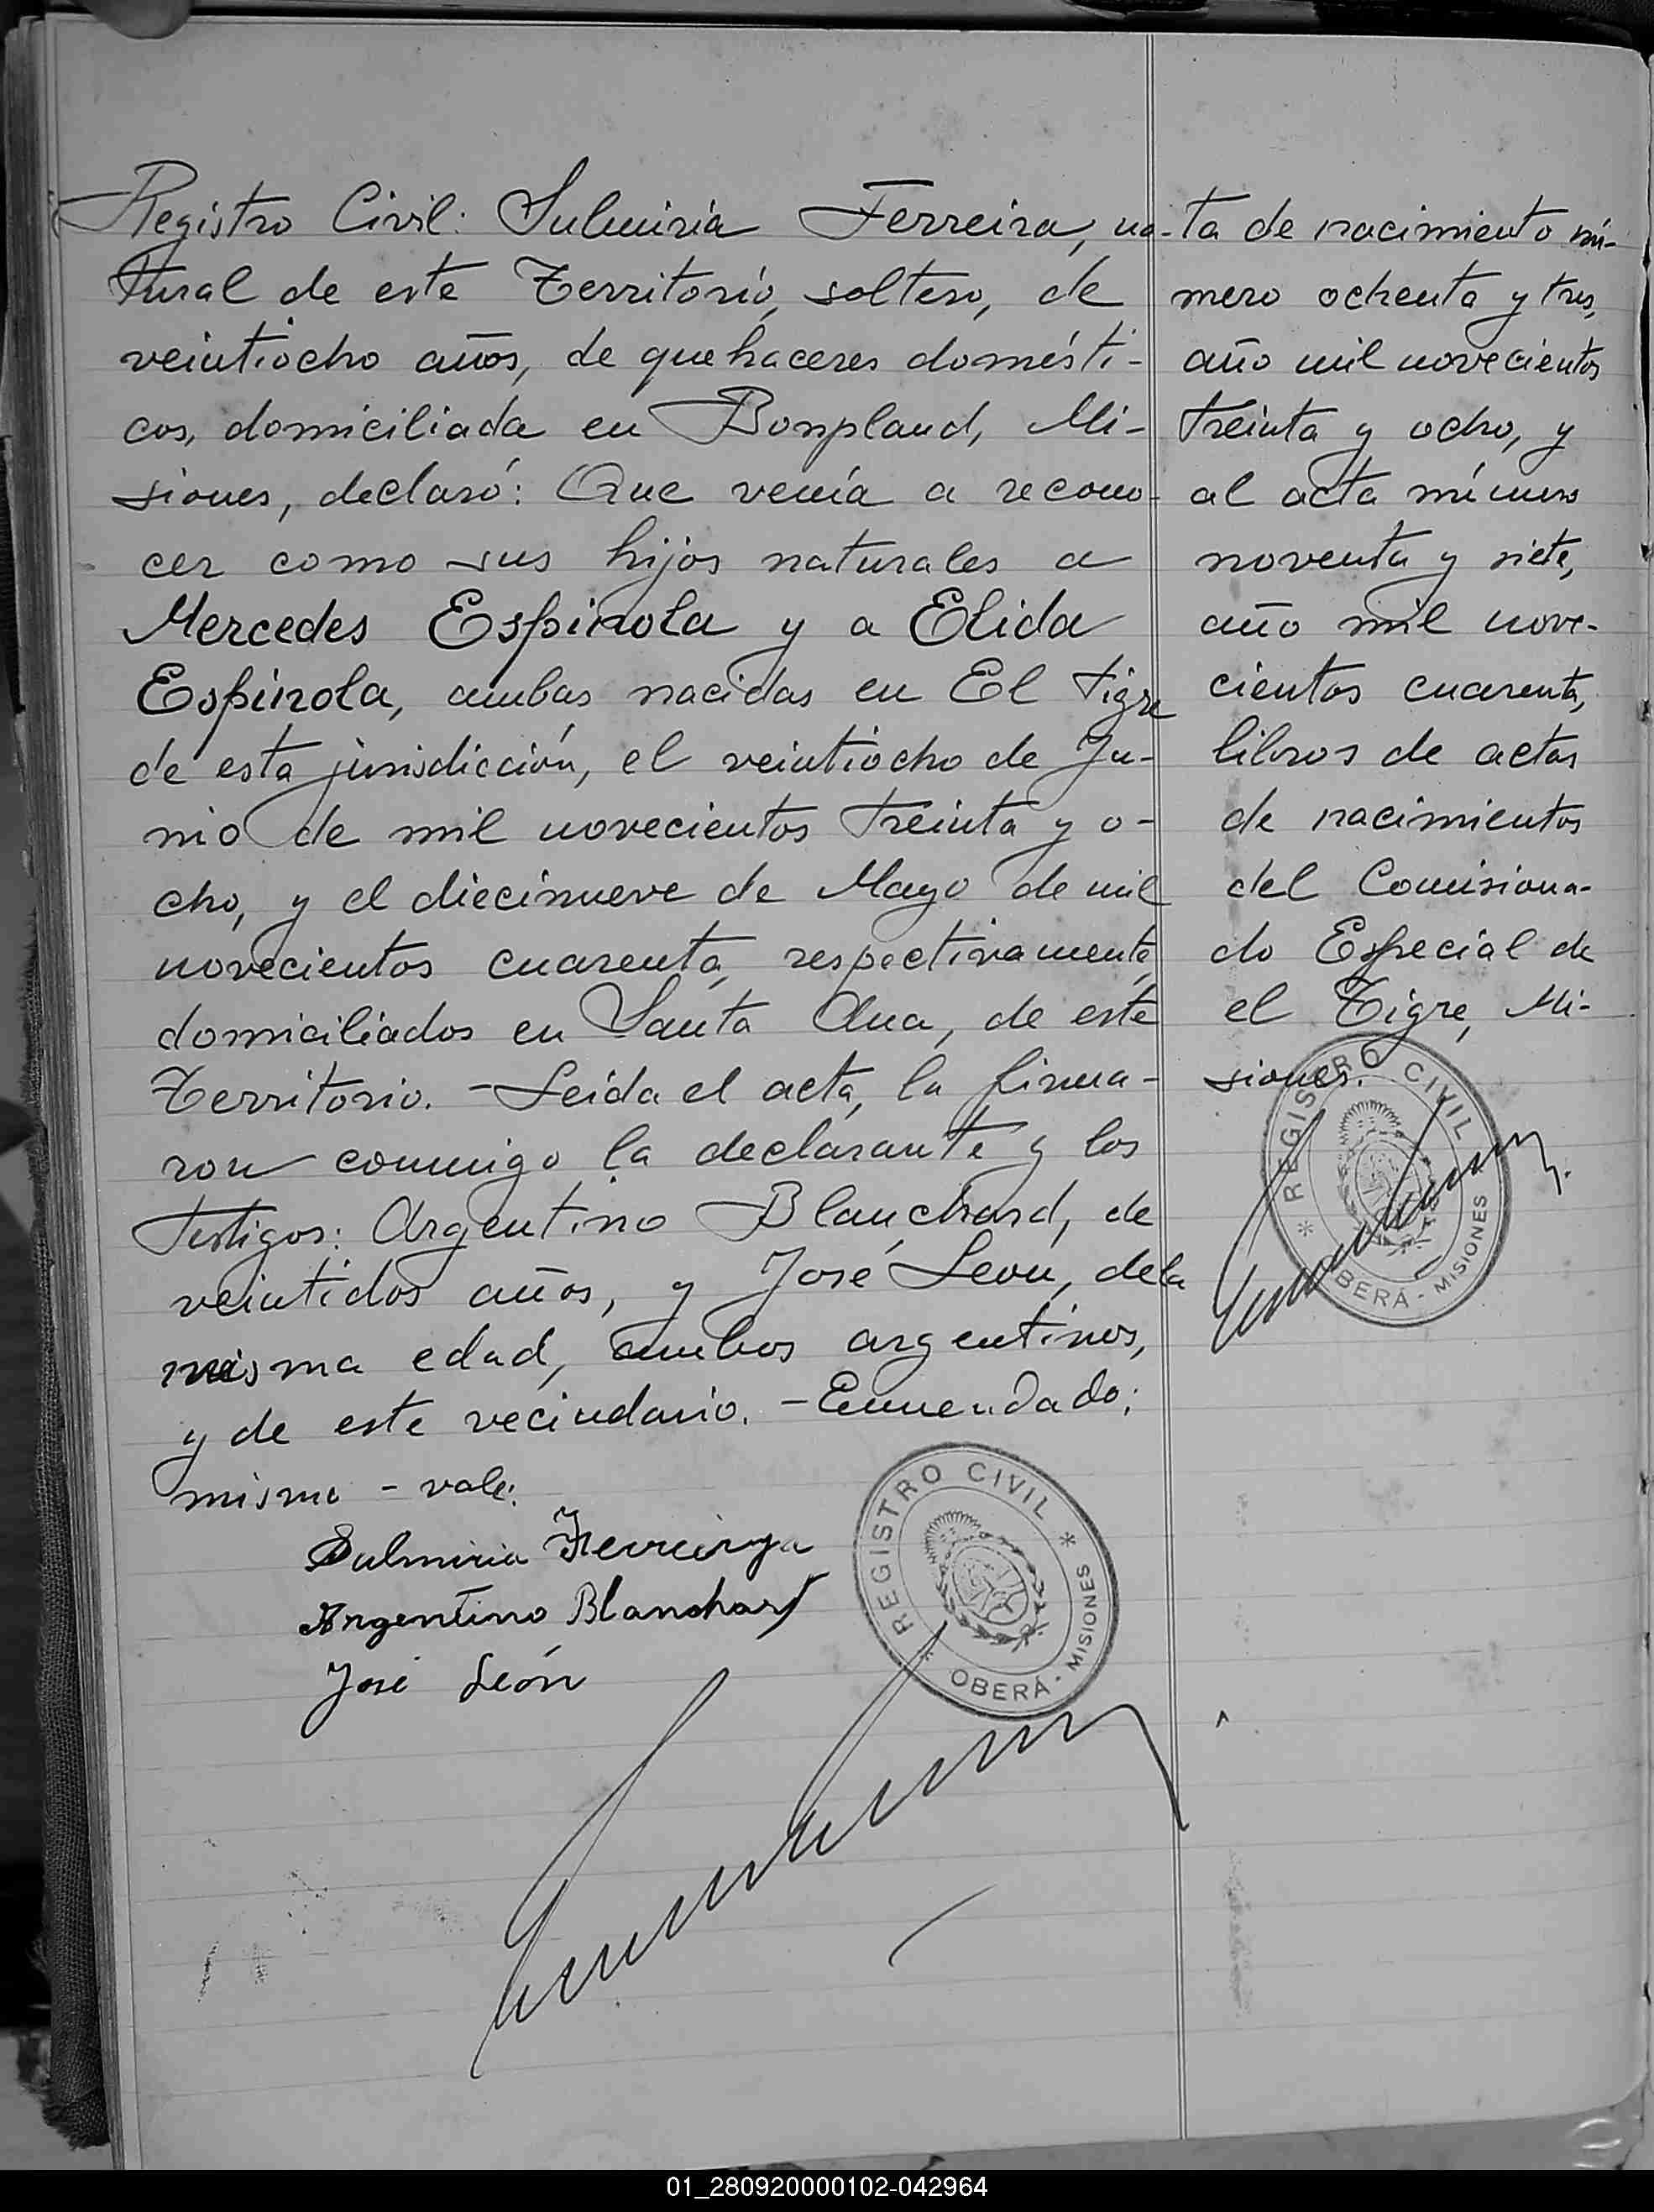 Registro Civil: Sulmiria Ferreira, na-
tural de este Territorio, soltero, de
veintiocho años, de quehaceres domésti-
cos, domiciliada en Bonpland, Mi-
siones, declaró: Que venía a recono-
cer como sus hijos naturales a
Mercedes Espinola y a Elida
Espinola, ambas nacidas en El Tigre
de esta jurisdicción, el veintiocho de Ju-
nio de mil novecientos treinta y o-
cho, y el diecinueve de Mayo de mil
novecientos cuarenta, respectivamente,
domiciliados en Santa Ana, de este
Territorio. - Leída el acta, la firma-
ron conmigo la declarante y los
testigos: Argentino Blanchard, de
veintidos años, y José León, de la
misma edad, ambos argentinos,
y de este vecindario. - Enmendado:
misma - vale.
Sulmiria Ferreirya
Argentino Blanchard
José León
REGISTRO CIVIL
OBERÁ - MISIONES
ta de nacimiento nú-
mero ochenta y tres,
año mil novecientos
treinta y ocho, y
al acta número
noventa y siete,
año mil nove-
cientos cuarenta,
libros de actas
de nacimientos
del Comisiona-
do Especial de
el Tigre, Mi-
siones.
REGISTRO CIVIL
OBERÁ - MISIONES
01_280920000102-042964